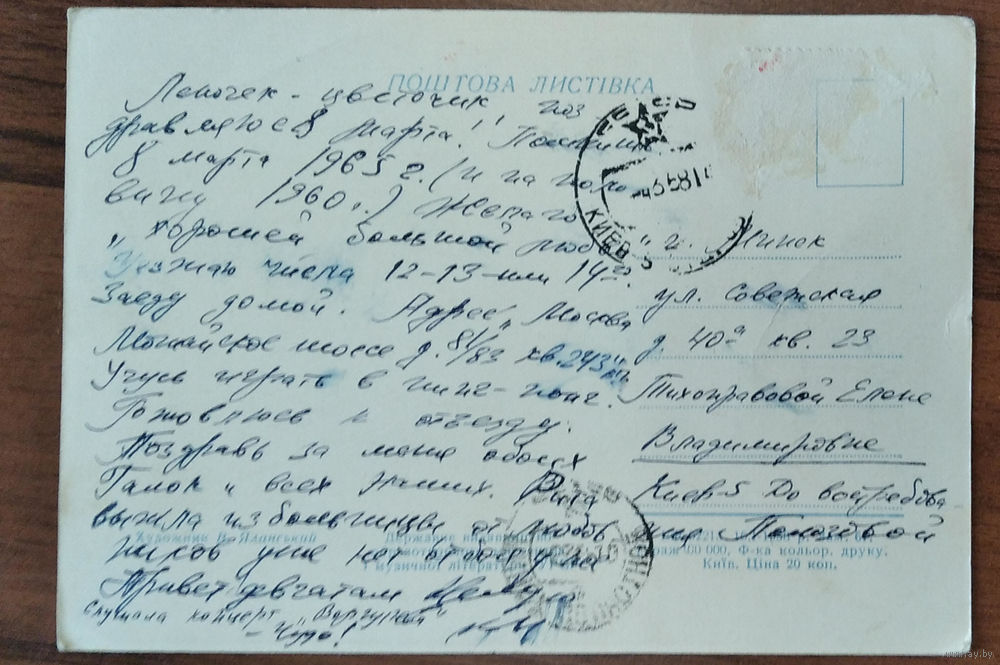 ПОШТОВА ЛИСТІВКА
Леночек - цветочик поз
дравляю с 8 Марта!!
8 марта 1965 г. (и на поло
вину 1960 г.) Желаю
„хорошей большой любви"
Уезжаю числа 12-13-или 14го.
Заеду домой. Адрес „Москва
Можайское шоссе д. 81/83 кв. 243"
Учусь играть в пинг-понг.
Готовлюсь к отъезду.
Поздравь за меня обоих
Галок и всех наших. Рита
вышла из больницы от любов
ников уже нет отбоя
Привет девчатам Целую
Слушала концерт „Вартулева"
- Чудо!
г. Минск
ул. Советская
д. 40а кв. 23
Тихонравовой Елене
Владимировне
Киев-5 До востребова
ния Пологовой
КИЕВ 5
Художник В. Яланський
Державне видавництво
образотворчого мистецтва
музичної літератури
раж 100 000, Ф-ка кольор. друку.
Київ. Ціна 20 коп.